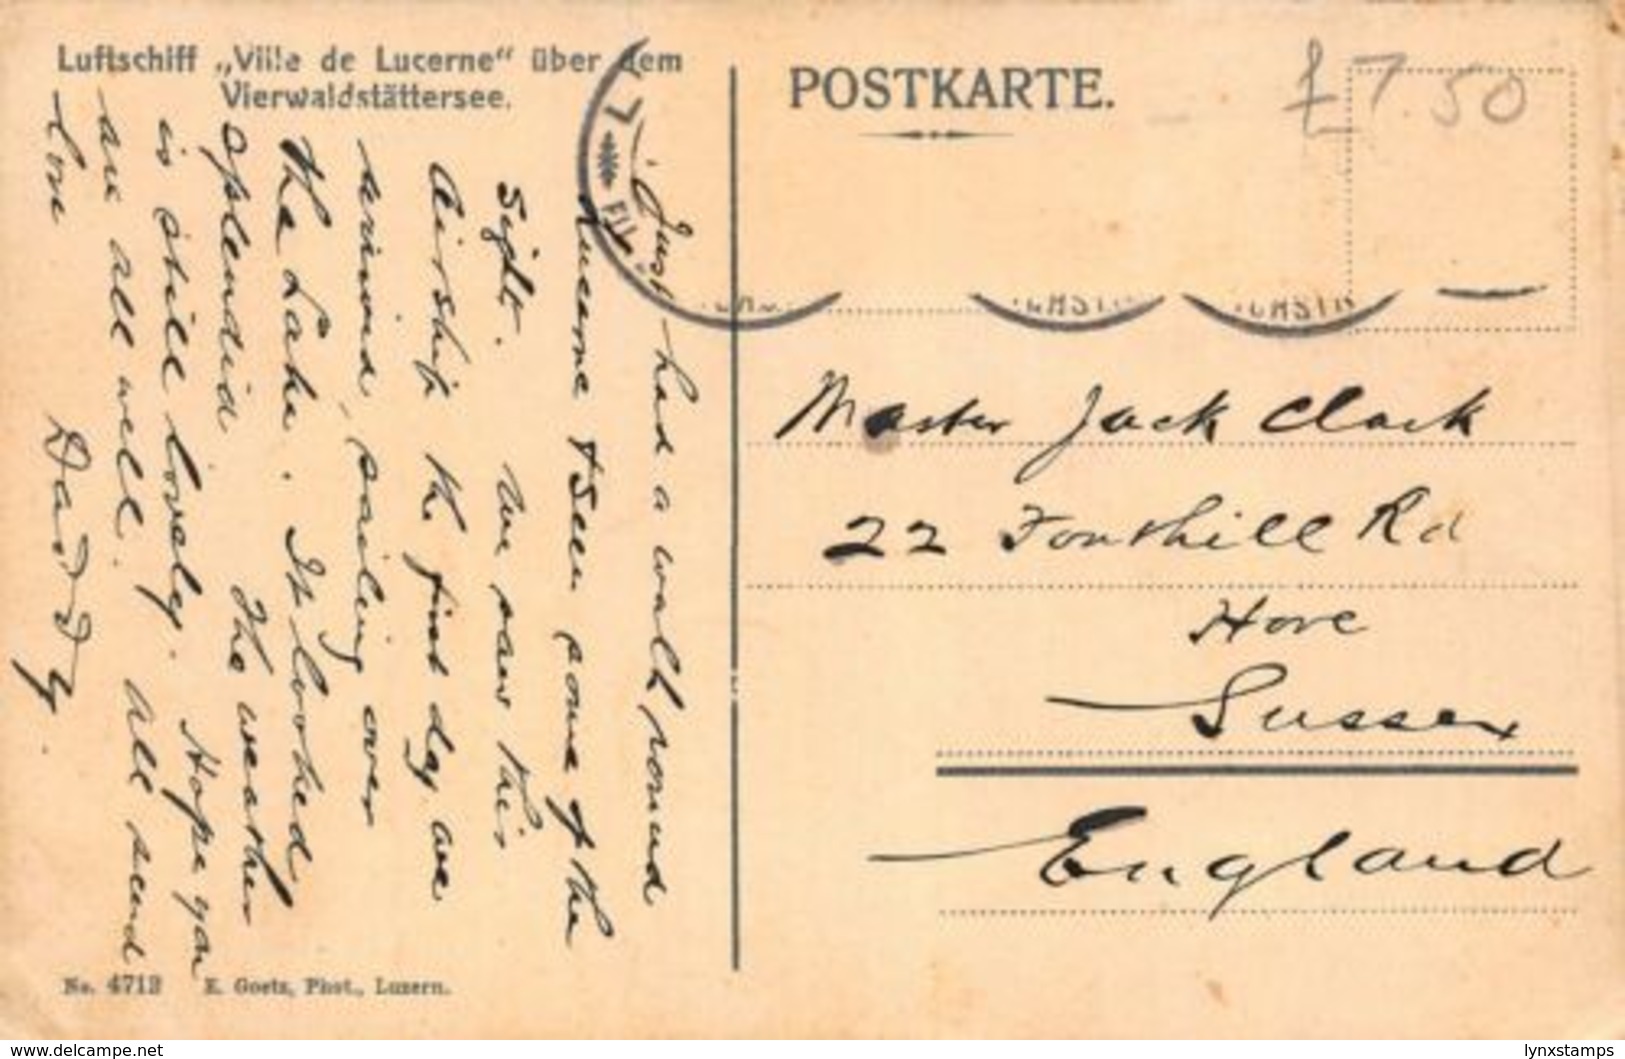 Luftschiff „Ville de Lucerne“ über dem
Vierwaldstättersee.
POSTKARTE.
£7.50
Just had a walk round
Lucerne & seen some of the
Sight. We saw this
Airship the first day we
arrived, sailing over
the Lake. It looked
splendid The weather
is still lovely. Hope you
are all well. All send
love Daddy.
Master Jack Clark
22 Fonthill Rd
Hove
Sussex
England
No. 4712 E. Goetz, Phot., Luzern.
www.delcampe.net
lynxstamps